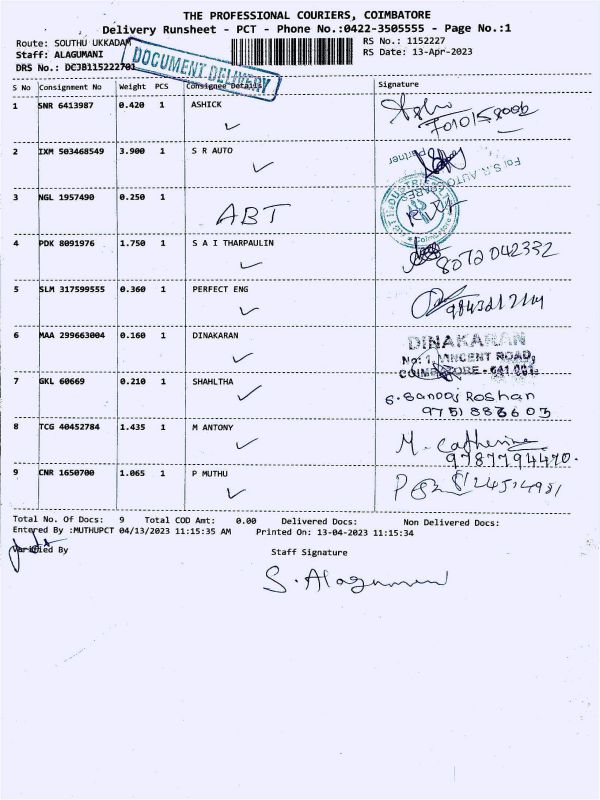 THE PROFESSIONAL COURIERS, COIMBATORE
Delivery Runsheet - PCT - Phone No.:0422-3505555 - Page No.:1
Route: SOUTHU UKKADAM RS No.: 1152227
Staff: ALAGUMANI RS Date: 13-Apr-2023
DRS No.: DCJB115222701
DOCUMENT DELIVERY
S No Consignment No Weight PCS Consignee Details Signature
1 SNR 6413987 0.420 1 ASHICK
2 IXM 503468549 3.900 1 S R AUTO
For S.R. AUTO
Partner
3 NGL 1957490 0.250 1 ABT
4 PDK 8091976 1.750 1 S A I THARPAULIN
8072042332
5 SLM 317599555 0.360 1 PERFECT ENG
6 MAA 299663004 0.160 1 DINAKARAN
DINAKARAN
No: 1, VINCENT ROAD,
COIMBATORE - 641 001.
7 GKL 60669 0.210 1 SHAHLTHA
Roshan
9751883603
8 TCG 40452784 1.435 1 M ANTONY
M. Catherine
9787794470.
9 CNR 1650700 1.065 1 P MUTHU
Total No. Of Docs: 9 Total COD Amt: 0.00 Delivered Docs: Non Delivered Docs:
Entered By :MUTHUPCT 04/13/2023 11:15:35 AM Printed On: 13-04-2023 11:15:34
Verified By Staff Signature
S. Alagumani